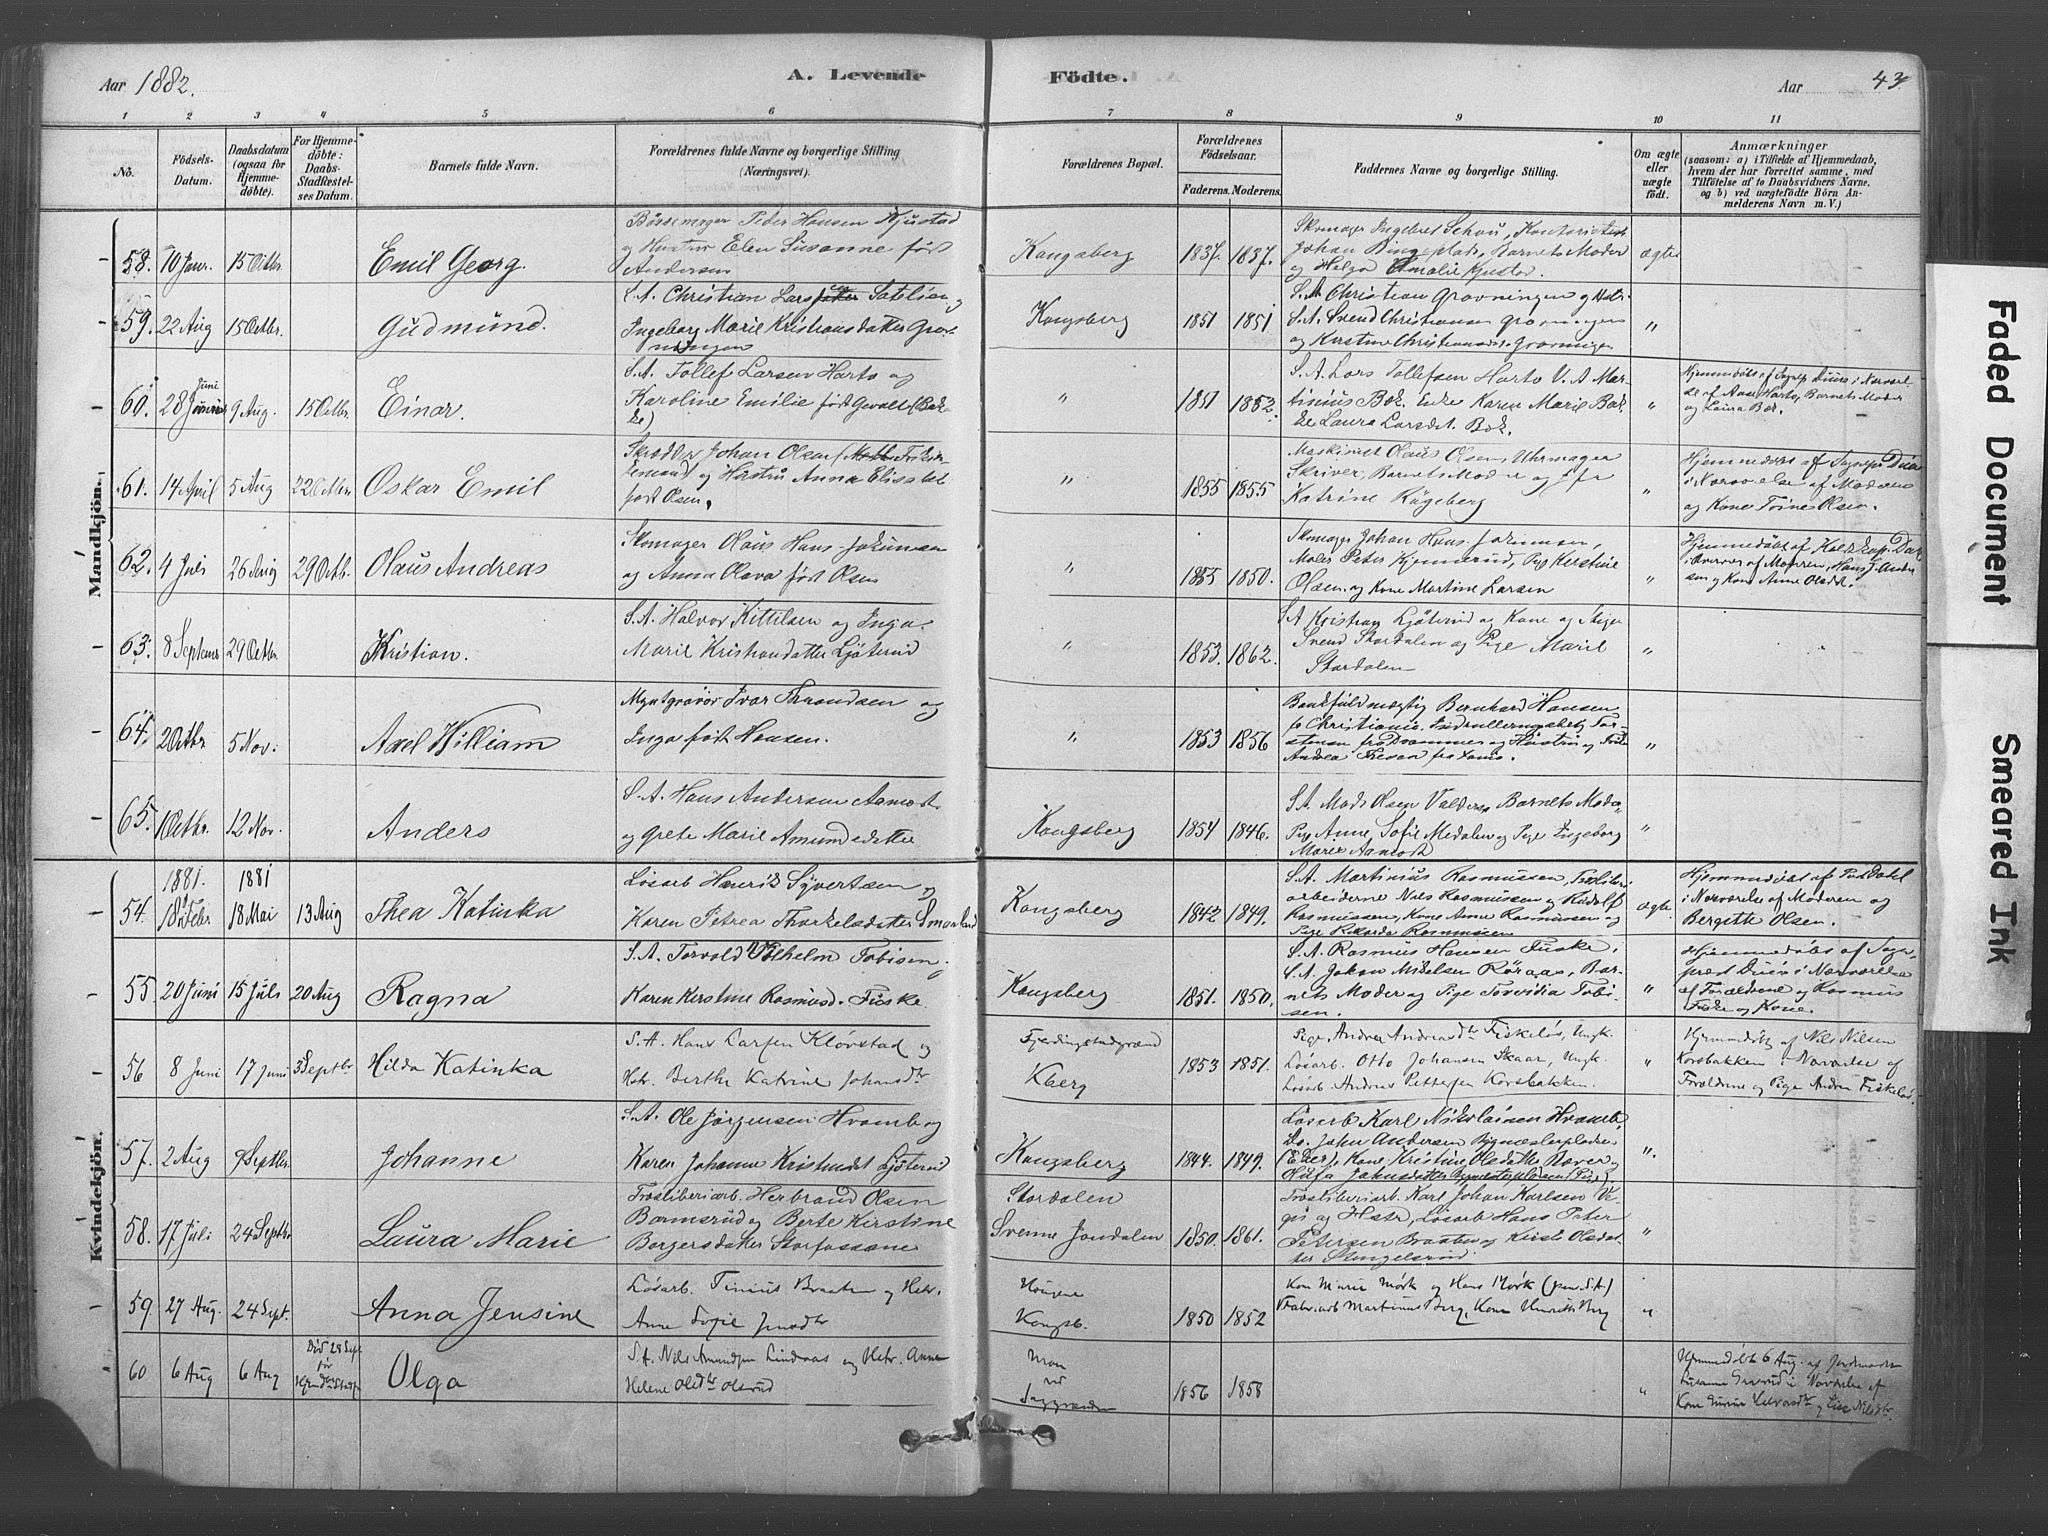 Aar 1882. A. Levende Födte. Aar 43
1 2 3 4 5 6 7 8 9 10 11
No. Födsels-Datum. Daabsdatum (ogsaa för Hjemme-döbte). For Hjemme-döbte: Daabs-Stadfæstel-ses Datum. Barnets fulde Navn. Forældrenes fulde Navne og borgerlige Stilling (Næringsvei). Forældrenes Bopæl. Forældrenes Födselsaar. Faderens. Moderens. Faddernes Navne og borgerlige Stilling. Om ægte eller uægte födt. Anmærkninger (saasom: a) i Tilfælde af Hjemmedaab, hvem der har forrettet samme, med Tilföielse af to Daabsvidners Navne. og b) ved uægtefödte Börn An-melderens Navn m. V.)
Mandkjön.
58. 10 Janr. 15 Octbr. Emil Georg.
Børsemager Peder Hansen Kjustad
og Hustru Elen Susanne født
Andersen
Kongsberg 1837. 1837.
Skomager Ingebret Schou,
Johan Barnets Moder
og Helga Amalie Kjustad.
ægte
59. 22 Aug 15 Octbr. Gudmund.
S.A. Christian Lars Satelien og
Ingeborg Marie Kristiansdatter Grov-
ningen
Kongsberg 1851 1851
S.A. Christian Grovningen og Hstr.
S.A. Svend Christiansen Grovningen
og Kirstine Christiansdt. Grovningen
"
60. 28 Juni 9 Aug. 15 Octbr. Einar.
S.A. Tollef Larsen Harto og
Karoline Emilie født Gevalt (Bak-
ke)
" 1851 1852.
S.A. Lars Tollefsen Harto V. A Mar-
tinius Bak. Enke Karen Marie Bak
Laura Larsdt. Bak.
"
Hjemmedøbt af Sognepr Duus i Nærværel-
se af Aase Harto, Barnets Moder
og Laura Bak.
61. 14 April 5 Aug 22 Octbr. Oskar Emil
Skrædder Johan Olsen
og Hustru Anna Elisabet
født Olsen.
" 1855 1855
Maskinist Olaus Olsen, Uhrmager
Skriver, Barnets Moder og
Katrine Rygeberg
"
Hjemmedøbt af Sognepr Duus
i Nærværelse af Moderen
og Kone Trine Olsen.
62. 4 Juli 26 Aug 29 Octb. Olaus Andreas
Skomager Olaus Hans. Johnsen
og Anna Olava født Olsen
" 1855 1850.
Skomager Johan Hans. Johnsen,
Maler Peter Kjennerud, Pige Kirstine
Olsen og Kone Martine Larsen
"
Hjemmedøbt af
Moderen, Hans J. Ander
sen og Kone Anne Olsdt.
63. 8 Septemb 29 Octbr. Kristian.
S.A. Halvor Kittilsen og Inga
Marie Kristiansdatter Ljøterud
" 1853. 1862.
S.A Kristian Ljøterud og Kone og Stiger
Svend Stordalen og Pige Marie
Stordalen
"
64. 2 Octbr 5 Nov. Axel William
Myntgravør Ivar Throndsen og
Inga født Hansen.
" 1853 1856
Bankfuldmægtig Bernhard Hansen
fr Christiania. Indrulleringsbetj Tor-
stensen fra Drammen og Hustru og
Andrea
"
65. 1 Octbr. 12 Nov. Anders
S.A. Hans Andersen Aamodt
og Grete Marie Amundsdatter
Kongsberg 1854 1846.
S.A. Mads Olsen Valders, Barnets Moder
Pige Anne Sofie Medalen og Pige Ingeborg
Marie Aamodt
"
Kvindekjön.
54. 1881. 18 Febr 1881 18 Mai 13 Aug Thea Katinka
Løsarb Henrik Syvertsen og
Karen Petrea Thorkelsdatter Smaaland
Kongsberg 1842 1849.
S.A. Martinius Rasmussen,
arbeiderne Nils Rasmussen og Rudolf
Rasmussen, Kone Anne Rasmussen og
Pige Rikarda Rasmussen
ægte.
Hjemmedøbt af
i Nærværelse af Moderen og
Bergitte Olsen.
55 20 Juni 15 Juli 20 Aug Ragna
S.A. Torvald Vilhelm Tobisen og
Karen Kirstine Rasmusd. Fiske.
Kongsberg 1851. 1850.
S.A. Rasmus Hansen Fiske,
S.A. Johan Mikelsen Røraas, Bar-
nets Moder og Pige Torvidia Tobi-
sen.
"
Hjemmedøbt af Sogne
præst Duus i Nærværelse
af Forældrene og Rasmus
Fiske og Kone.
56 8 Juni 17 Juni 3 Septbr Hilda Katinka
S.A. Hans Larsen Kløvstad og
Hstr. Berthe Katrine Johansdtr
Kberg 1853 1851.
Pige Andrea Andreasdtr Fiskeløs, Ungk.
Løsarb. Otto Johansen Skaar, Ungk.
Løsarb. Andreas Pettersen Korsbakken.
"
Hjemmedøbt af Nils Nilsen
Korsbakken i Nærværelse af
Forældrene og Pige Andrea Fiskeløs.
57. 2 Aug 9 Septbr. Johanne
S.A. Ole Jørgensen Hvamb og
Karen Johanne Kristiansdt Ljøterud
Kongsberg 1844. 1849.
Løsarb Karl Nikolaisen Hvamb,
Do. John Andersen Bygmesterpladsen
(Eker), Kone Kristine Olsdatter og
".
58. 17 Juli 24 Septbr Laura Marie
Træsliberiarb. Herbrand Olsen
Bamsrud og Berte Kirstine
Borgersdatter Storfossane
Stordalen
Svenne Jondalen 1850. 1861.
Træsliberiarb. Karl Johan Karlsen
og Hstr, Løsarb Hans Peter
Petersen Braaten og Kirsti Olsdat-
ter Stengelsrud
"
59 27 Aug. 24 Sept. Anna Jensine
Løsarb. Tinius Braaten og Hstr.
Anne Sofie
Kongsb. 1850 1852
Kone Marie Mørk og Hans Mørk (pens. S.A)
Fabr.arb Martinius Berg, Kone Henriette Berg
"
60 6 Aug 6 Aug Død 28 Sept. før Olga
S.A. Nils Amundsen Lindaas og Hstr. Anne
Helene Olsdtr Olsrud
1856 1858
"
Hjemmedøbt 6 Aug. af Jordmoder
Susanne i Nærværelse af
Kone og Lise Nilsdtr.
Faded Document
Smeared Ink